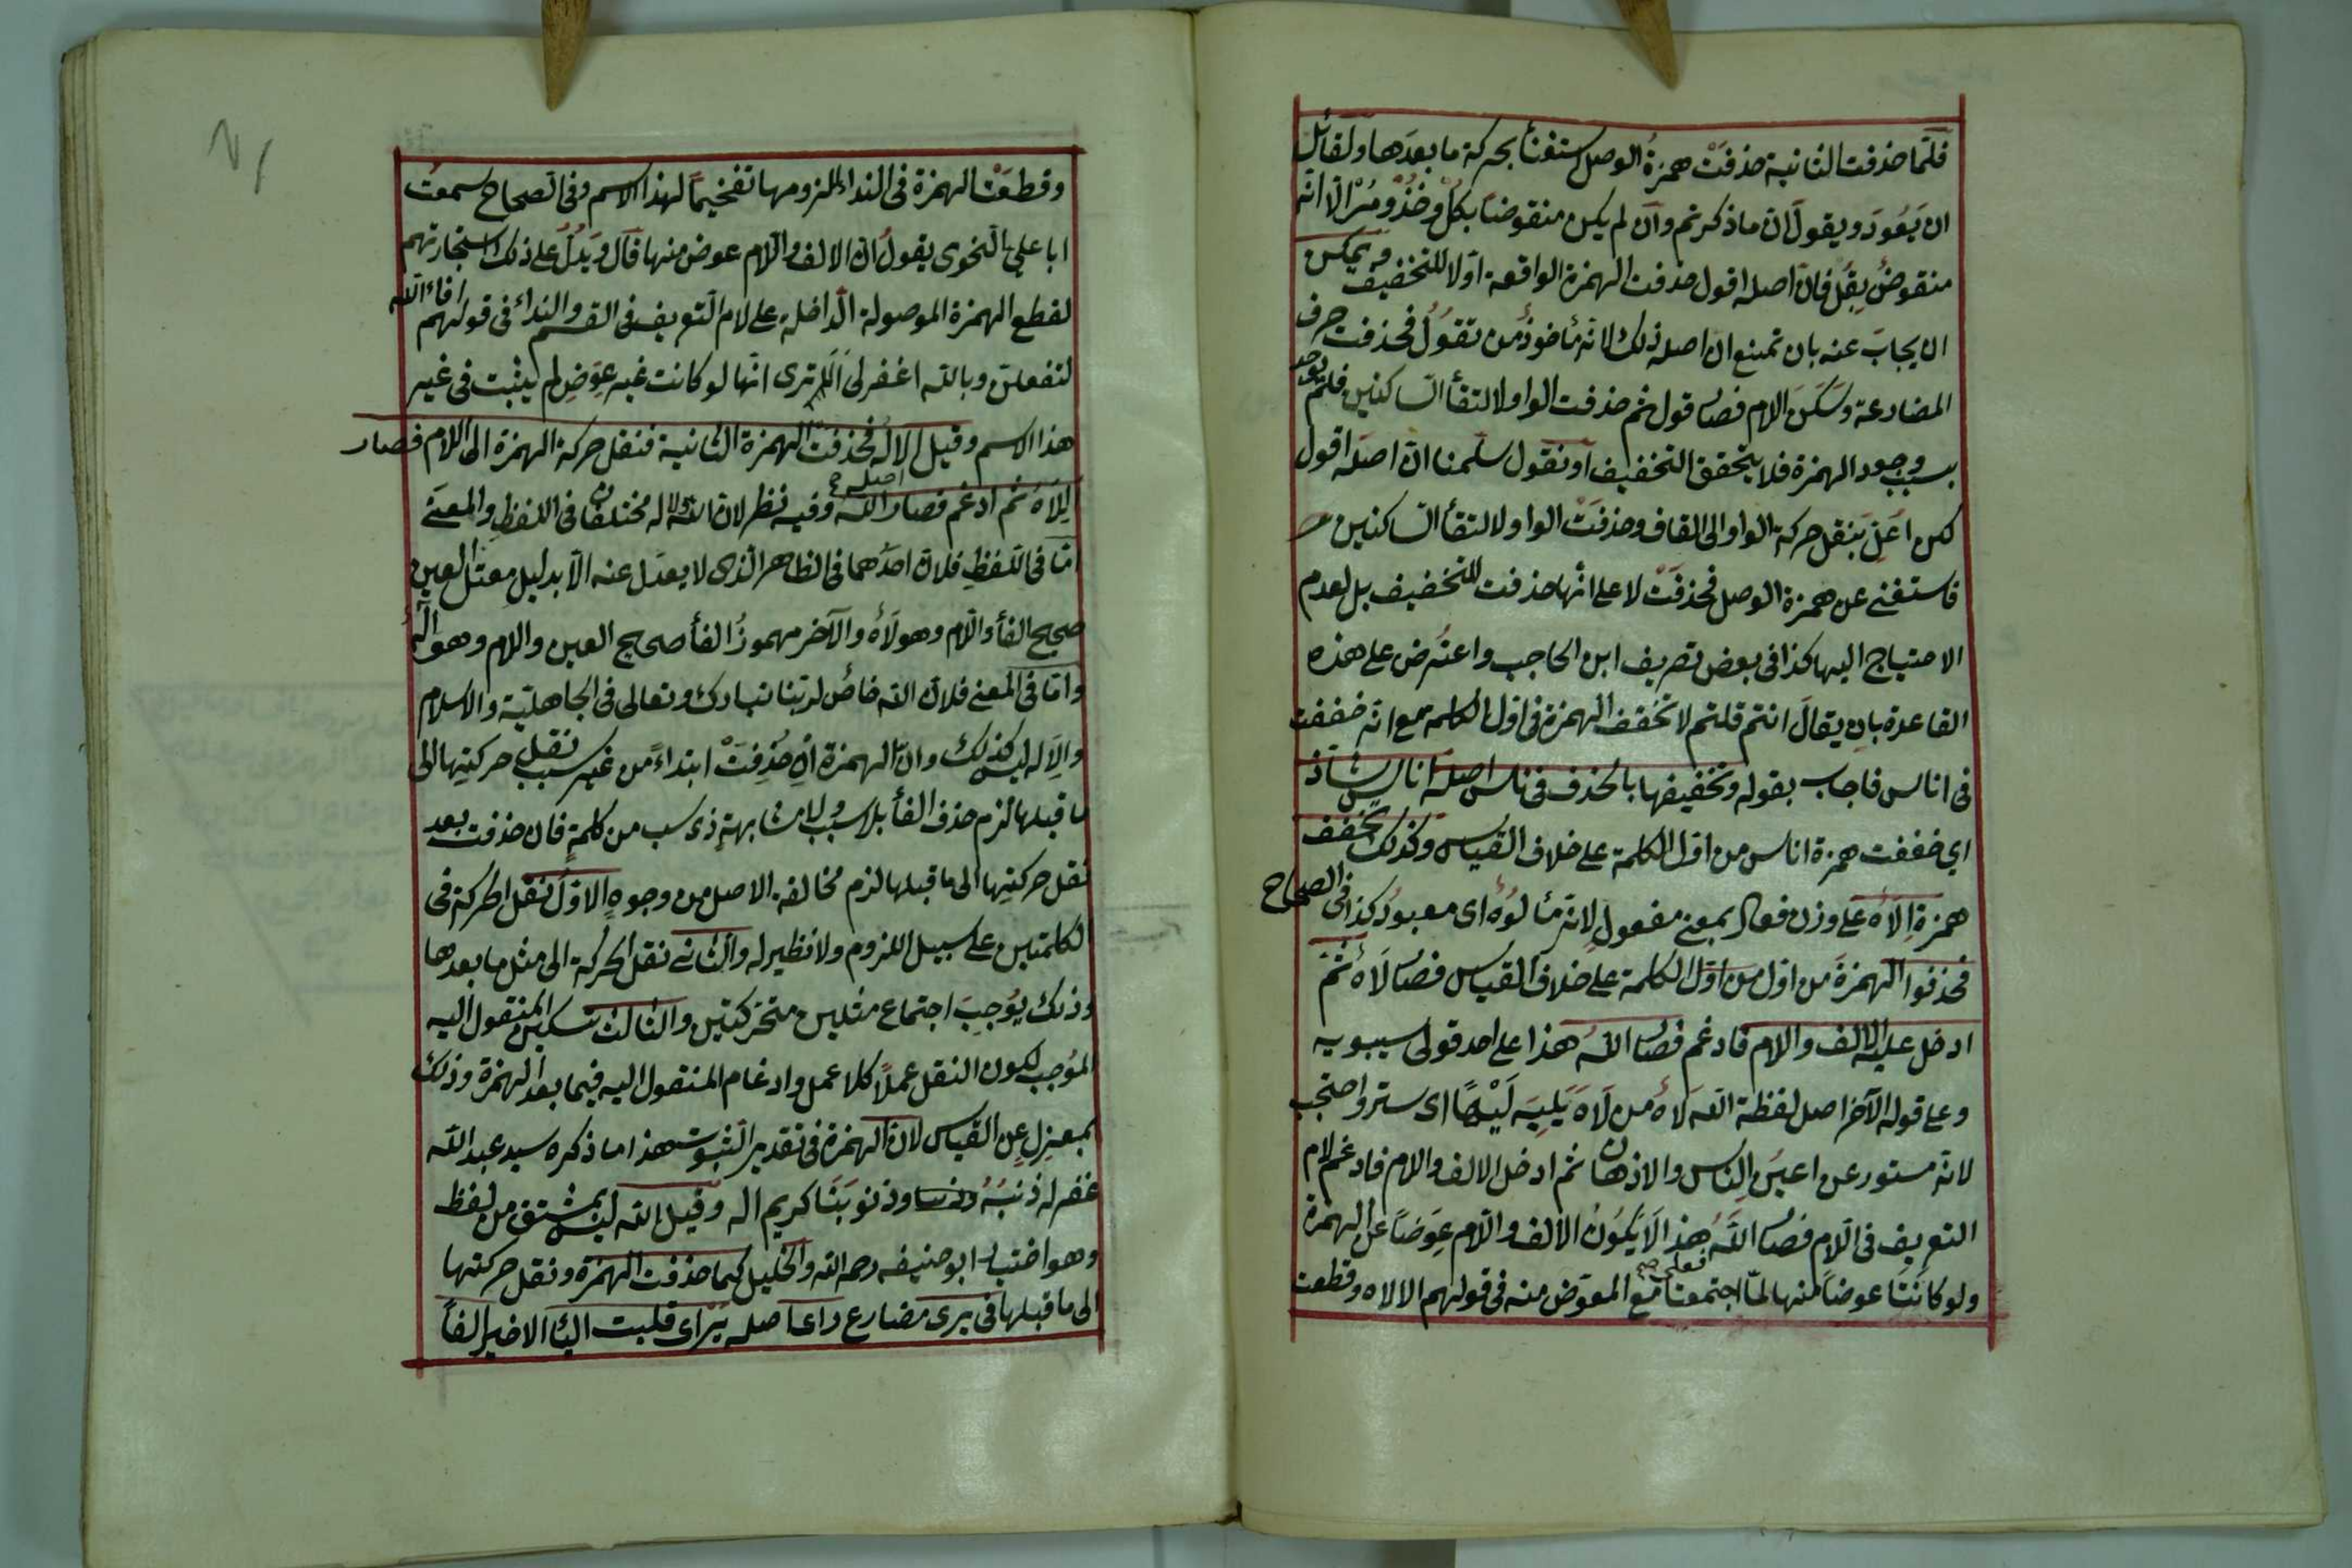 فلمّا حذفت الثانية حذفَتْ همزةُ الوصل استغنأ بحركة ما بعدَها ولقائل
ان يَعُودَ ويقولَ انّ ما ذكرتم وان لم يكن منقوضاً بكُلْ وخُذْ ومُرْ الّا انّه
منقوضٌ بِقُل فانّ اصله اقول حذفت الهمزة الواقعة اوّلا للتخفيف ويمكن
ان يجابَ عنه بان نمنع ان اصله ذلك لانّه مأخوذٌ من تقوُلُ فحذفت حرف
المضارعة وسَكَنَ اللام فصار قول ثم حذفت الواو لالتقأ الساكنين فلم يوجد
سبب وجود الهمزة فلا يتحقق التخفيف او نقول سلّمنا انّ اصله اقول
لكن اُعِلّ بنقل حركة الواو الى القاف وحذفَتْ الواو لالتقأ الساكنين
فاستغنى عن همزة الوصل فحذفَتْ لا على انّها حذفت للتخفيف بل لعدم
الاحتياج اليها كذا فى بعض تصريف ابن الحاجب واعتُرض على هذه
القاعدة بان يقالَ انتم قلتم لا تخَفف الهمزة فى اوّل الكلمه مع انّه خففت
فى اناس فاجاب بقوله وتخفيفها بالحذف فى ناس اصله اناس شاذ
اي خففت همزة اناس من اوّل الكلمة على خلاف القياس وكذلك تخفف
همزة اِلاَه على وزن فعال بمعنى مفعول لانّه مألوُهٌ اى معبودٌ كذا فى الصحاح
فحذفوا الهمزةَ من اول من اوّل الكلمة على خلاف القياس فصار لَاهٌ ثمّ
ادخل عليه الالف واللام فادغم فصار اللهُ هذا على احد قولى سيبويه
وعلى قوله الآخر اصل لفظة الله لاهٌ من لَاهَ يَلِيهَ لَيْهًا اى ستر واحتجب
لانّه مستور عن اعين الناس والاذهان ثم ادخل الالف واللام فادغم لام
التعريف فى اللام فصار اللهُ هذا لاَ يكُونُ الالف واللام عِوَضاً عن الهمزة
ولو كانتا عوضاً منها لمّا اجتمعتا مع المعوّض منه فى قولهم الالاه وقطعت
فعلى هـ
وقطعَتْ الهمزة فى النداء للزومها تفخيماً لهذا الاسم وفى الصحاح سمعتُ
ابا علي النحوى يقولُ انّ الالف واللام عوض منها قال ويَدُلُّ على ذلك استجارتهم
لقطع الهمزة الموصولة الداخلة على لام التعريف فى القسم والنداء فى قولهم افاءلله
لتفعلنّ وبالله اغفر لى الا ترى انّها لو كانت غير عِوَضٍ لم يثبت فى غير
هذا الاسم وقيل الالٰه فحذفت الهمزة الثانية فنقل حركة الهمزة الى اللام فصار
اصله
اللاَهُ ثم ادغم فصار الله وفيه نظر لانّ الله والاله مختلفان فى اللفظ والمعنى
امّا فى اللفظِ فلانّ احدَهما فى الظاهر الذى لا يعدَل عنه الّا بدليل معتلّ العين
صحيح الفأ واللام وهو لَاهٌ والآخر مهموزُ الفأ صحيح العين واللام وهو اله
وامّا فى المعنى فلانّ الله خاصٌ لربّنا تبارك وتعالى فى الجاهليّة والاسلام
والاِلَه ليس كذلك وانّ الهمزة ان حُذِفَتْ ابتداءً من غير سبب نقل حركتِها الى
ما قبلها لزم حذف الفأ بلا سببٍ ولا مشابهةِ ذى سبب من كلمةٍ فان حذفت بعد
نقل حركتِها الى ما قبلها لزم مخالفة الاصل من وجوهٍ الاوّلُ نقل الحركة فى
الكلمتين على سبيل اللزوم ولا نظير له والثانى نقل الحركة الى مثل ما بعدها
وذلك يُوجبَ اجتماع مثلين متحرّكتين والثالث تسكين المنقول اليه
المُوجب لكون النقل عملاً كلا عمل وادغام المنقول اليه فيما بعد الهمزة وذلك
بمعزلٍ عن القياس لانّ الهمزة فى تقدير الثبوت هذا ما ذكره سيد عبد الله
غفر له ذنبَهُ وذنوبَنَا كريم اله وقيل الله ليس بمشتق من لفظ
وهو اختيار ابو حنيفه رحمه الله والخليل كما حذفت الهمزة ونقل حركتها
الى ما قبلها فى يرى مضارع راى اصله يَرْاى قلبت اليأ الاخير الفاً